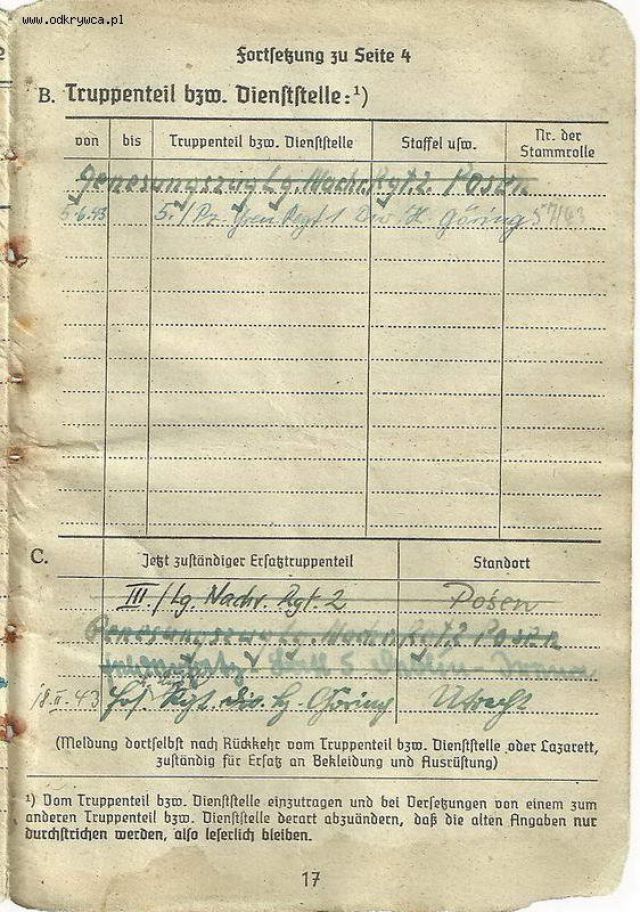 www.odkrywca.pl
Fortsetzung zu Seite 4
B. Truppenteil bzw. Dienststelle:¹)
von bis Truppenteil bzw. Dienststelle Staffel usw. Nr. der Stammrolle
Genesungszug Lg. Nachr. Rgt. 2. Posen
5.6.43 5./Pz. Gren Regt 1 Div. H. Göring 57/43
C. Jetzt zuständiger Ersatztruppenteil Standort
III./Lg. Nachr. Rgt. 2 Posen
Genesungszug Lg. Nachr. Rgt. 2 Posen
18. 43 Rgt. Div. Hg. Göring Utrecht
(Meldung dortselbst nach Rückkehr vom Truppenteil bzw. Dienststelle oder Lazarett,
zuständig für Ersatz an Bekleidung und Ausrüstung)
¹) Vom Truppenteil bzw. Dienststelle einzutragen und bei Versetzungen von einem zum
anderen Truppenteil bzw. Dienststelle derart abzuändern, daß die alten Angaben nur
durchstrichen werden, also leserlich bleiben.
17